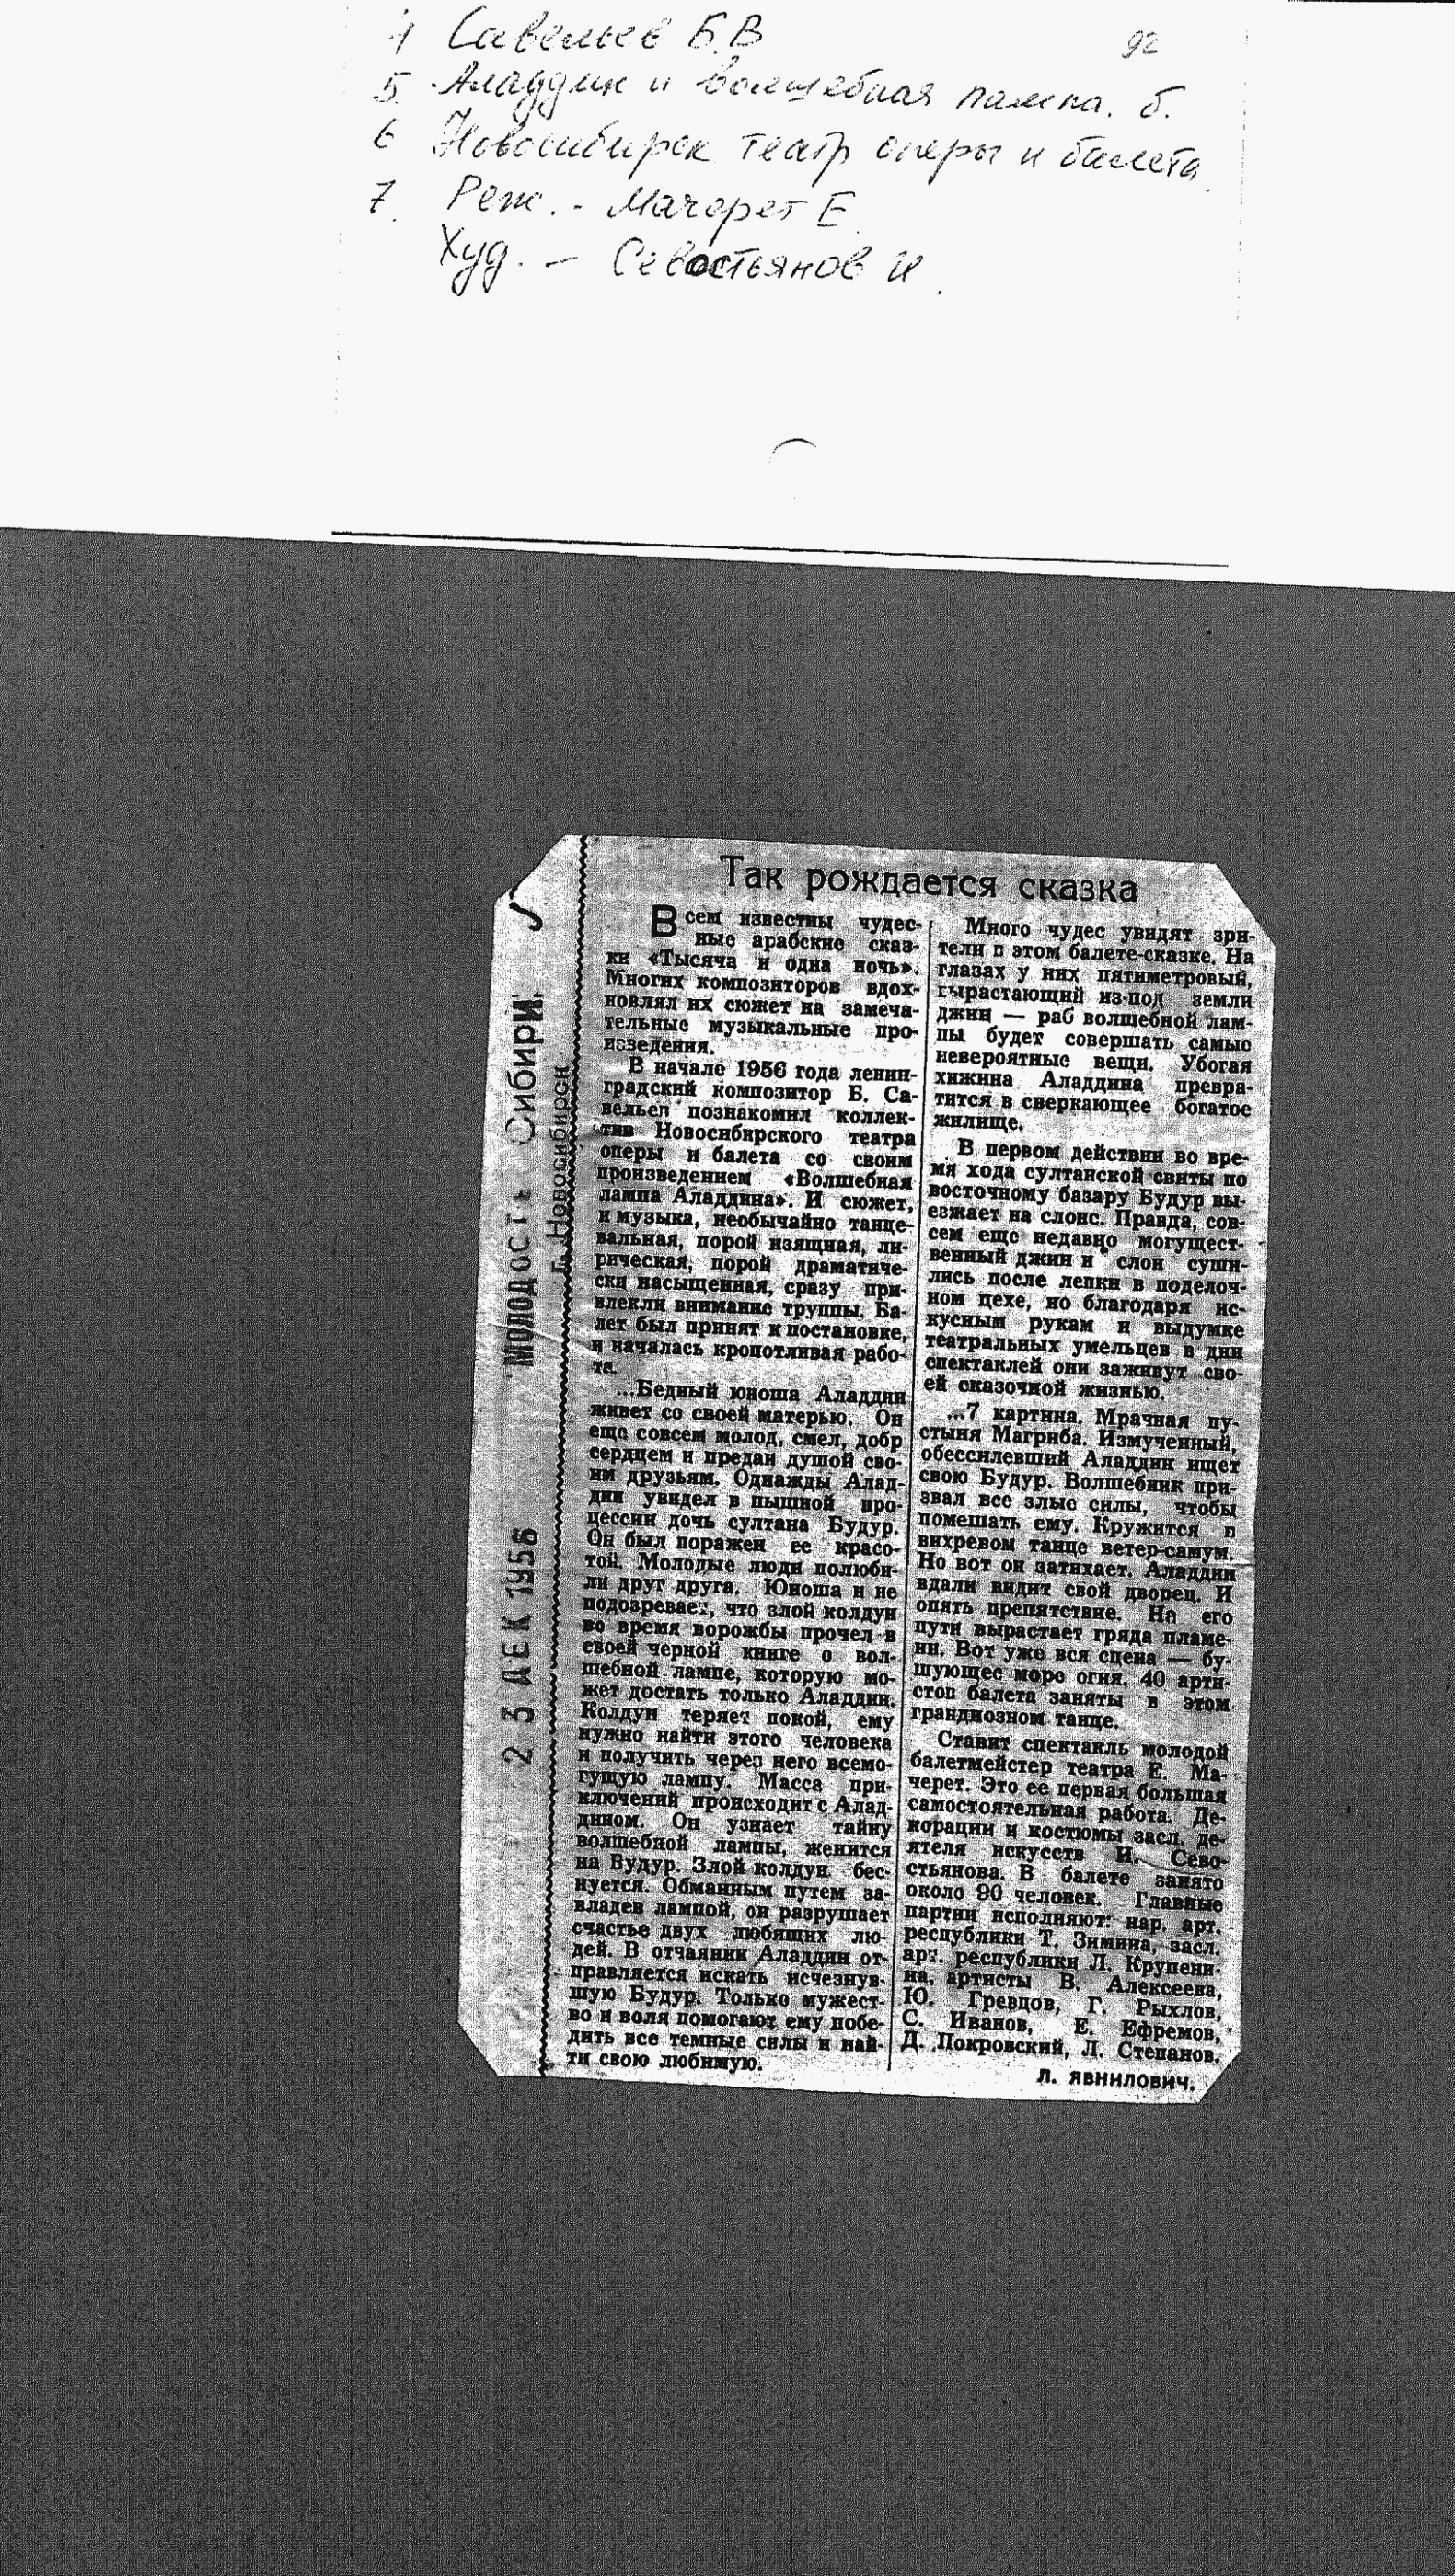 4 Савельев Б.В
92
5. Аладдин и волшебная лампа. б.
6 Новосибирск театр оперы и балета
7. Реж. - Мачерет Е.
Худ. - Севостьянов И.
МОЛОДОСТЬ Сибири.
г. Новосибирск
23 ДЕК 1956
Так рождается сказка
Всем известны чудес-
ные арабские сказ-
ки «Тысяча и одна ночь».
Многих композиторов вдох-
новлял их сюжет на замеча-
тельные музыкальные про-
изведения.
В начале 1956 года ленин-
градский композитор Б. Са-
вельев познакомил коллек-
тив Новосибирского театра
оперы и балета со своим
произведением «Волшебная
лампа Аладдина». И сюжет,
и музыка, необычайно танце-
вальная, порой изящная, ли-
рическая, порой драматиче-
ски насыщенная, сразу при-
влекли внимание труппы. Ба-
лет был принят к постановке,
и началась кропотливая рабо-
та.
...Бедный юноша Аладдин
живет со своей матерью. Он
еще совсем молод, смел, добр
сердцем и предан душой сво-
им друзьям. Однажды Алад-
дин увидел в пышной про-
цессии дочь султана Будур.
Он был поражен ее красо-
той. Молодые люди полюби-
ли друг друга. Юноша и не
подозревает, что злой колдун
во время ворожбы прочел в
своей черной книге о вол-
шебной лампе, которую мо-
жет достать только Аладдин.
Колдун теряет покой, ему
нужно найти этого человека
и получить через него всемо-
гущую лампу. Масса при-
ключений происходит с Алад-
дином. Он узнает тайну
волшебной лампы, женится
на Будур. Злой колдун бес-
нуется. Обманным путем за-
владев лампой, он разрушает
счастье двух любящих лю-
дей. В отчаянии Аладдин от-
правляется искать исчезнув-
шую Будур. Только мужест-
во и воля помогают ему побе-
дить все темные силы и най-
ти свою любимую.
Много чудес увидят зри-
тели в этом балете-сказке. На
глазах у них пятиметровый,
вырастающий из-под земли
джин — раб волшебной лам-
пы будет совершать самые
невероятные вещи. Убогая
хижина Аладдина превра-
тится в сверкающее богатое
жилище.
В первом действии во вре-
мя хода султанской свиты по
восточному базару Будур вы-
езжает на слоне. Правда, сов-
сем еще недавно могущест-
венный джин и слон суши-
лись после лепки в поделоч-
ном цехе, но благодаря ис-
кусным рукам и выдумке
театральных умельцев в дни
спектаклей они заживут сво-
ей сказочной жизнью.
...7 картина. Мрачная пу-
стыня Магриба. Измученный,
обессилевший Аладдин ищет
свою Будур. Волшебник при-
звал все злые силы, чтобы
помешать ему. Кружится в
вихревом танце ветер-самум.
Но вот он затихает. Аладдин
вдали видит свой дворец. И
опять препятствие. На его
пути вырастает гряда пламе-
ни. Вот уже вся сцена — бу-
шующее море огня. 40 арти-
стов балета заняты в этом
грандиозном танце.
Ставит спектакль молодой
балетмейстер театра Е. Ма-
черет. Это ее первая большая
самостоятельная работа. Де-
корации и костюмы засл. де-
ятеля искусств И. Сево-
стьянова. В балете занято
около 90 человек. Главные
партии исполняют: нар. арт.
республики Т. Зимина, засл.
арт. республики Л. Крупени-
на, артисты В. Алексеева,
Ю. Гревцов, Г. Рыхлов,
С. Иванов, Е. Ефремов,
Д. Покровский, Л. Степанов.
Л. ЯВНИЛОВИЧ.